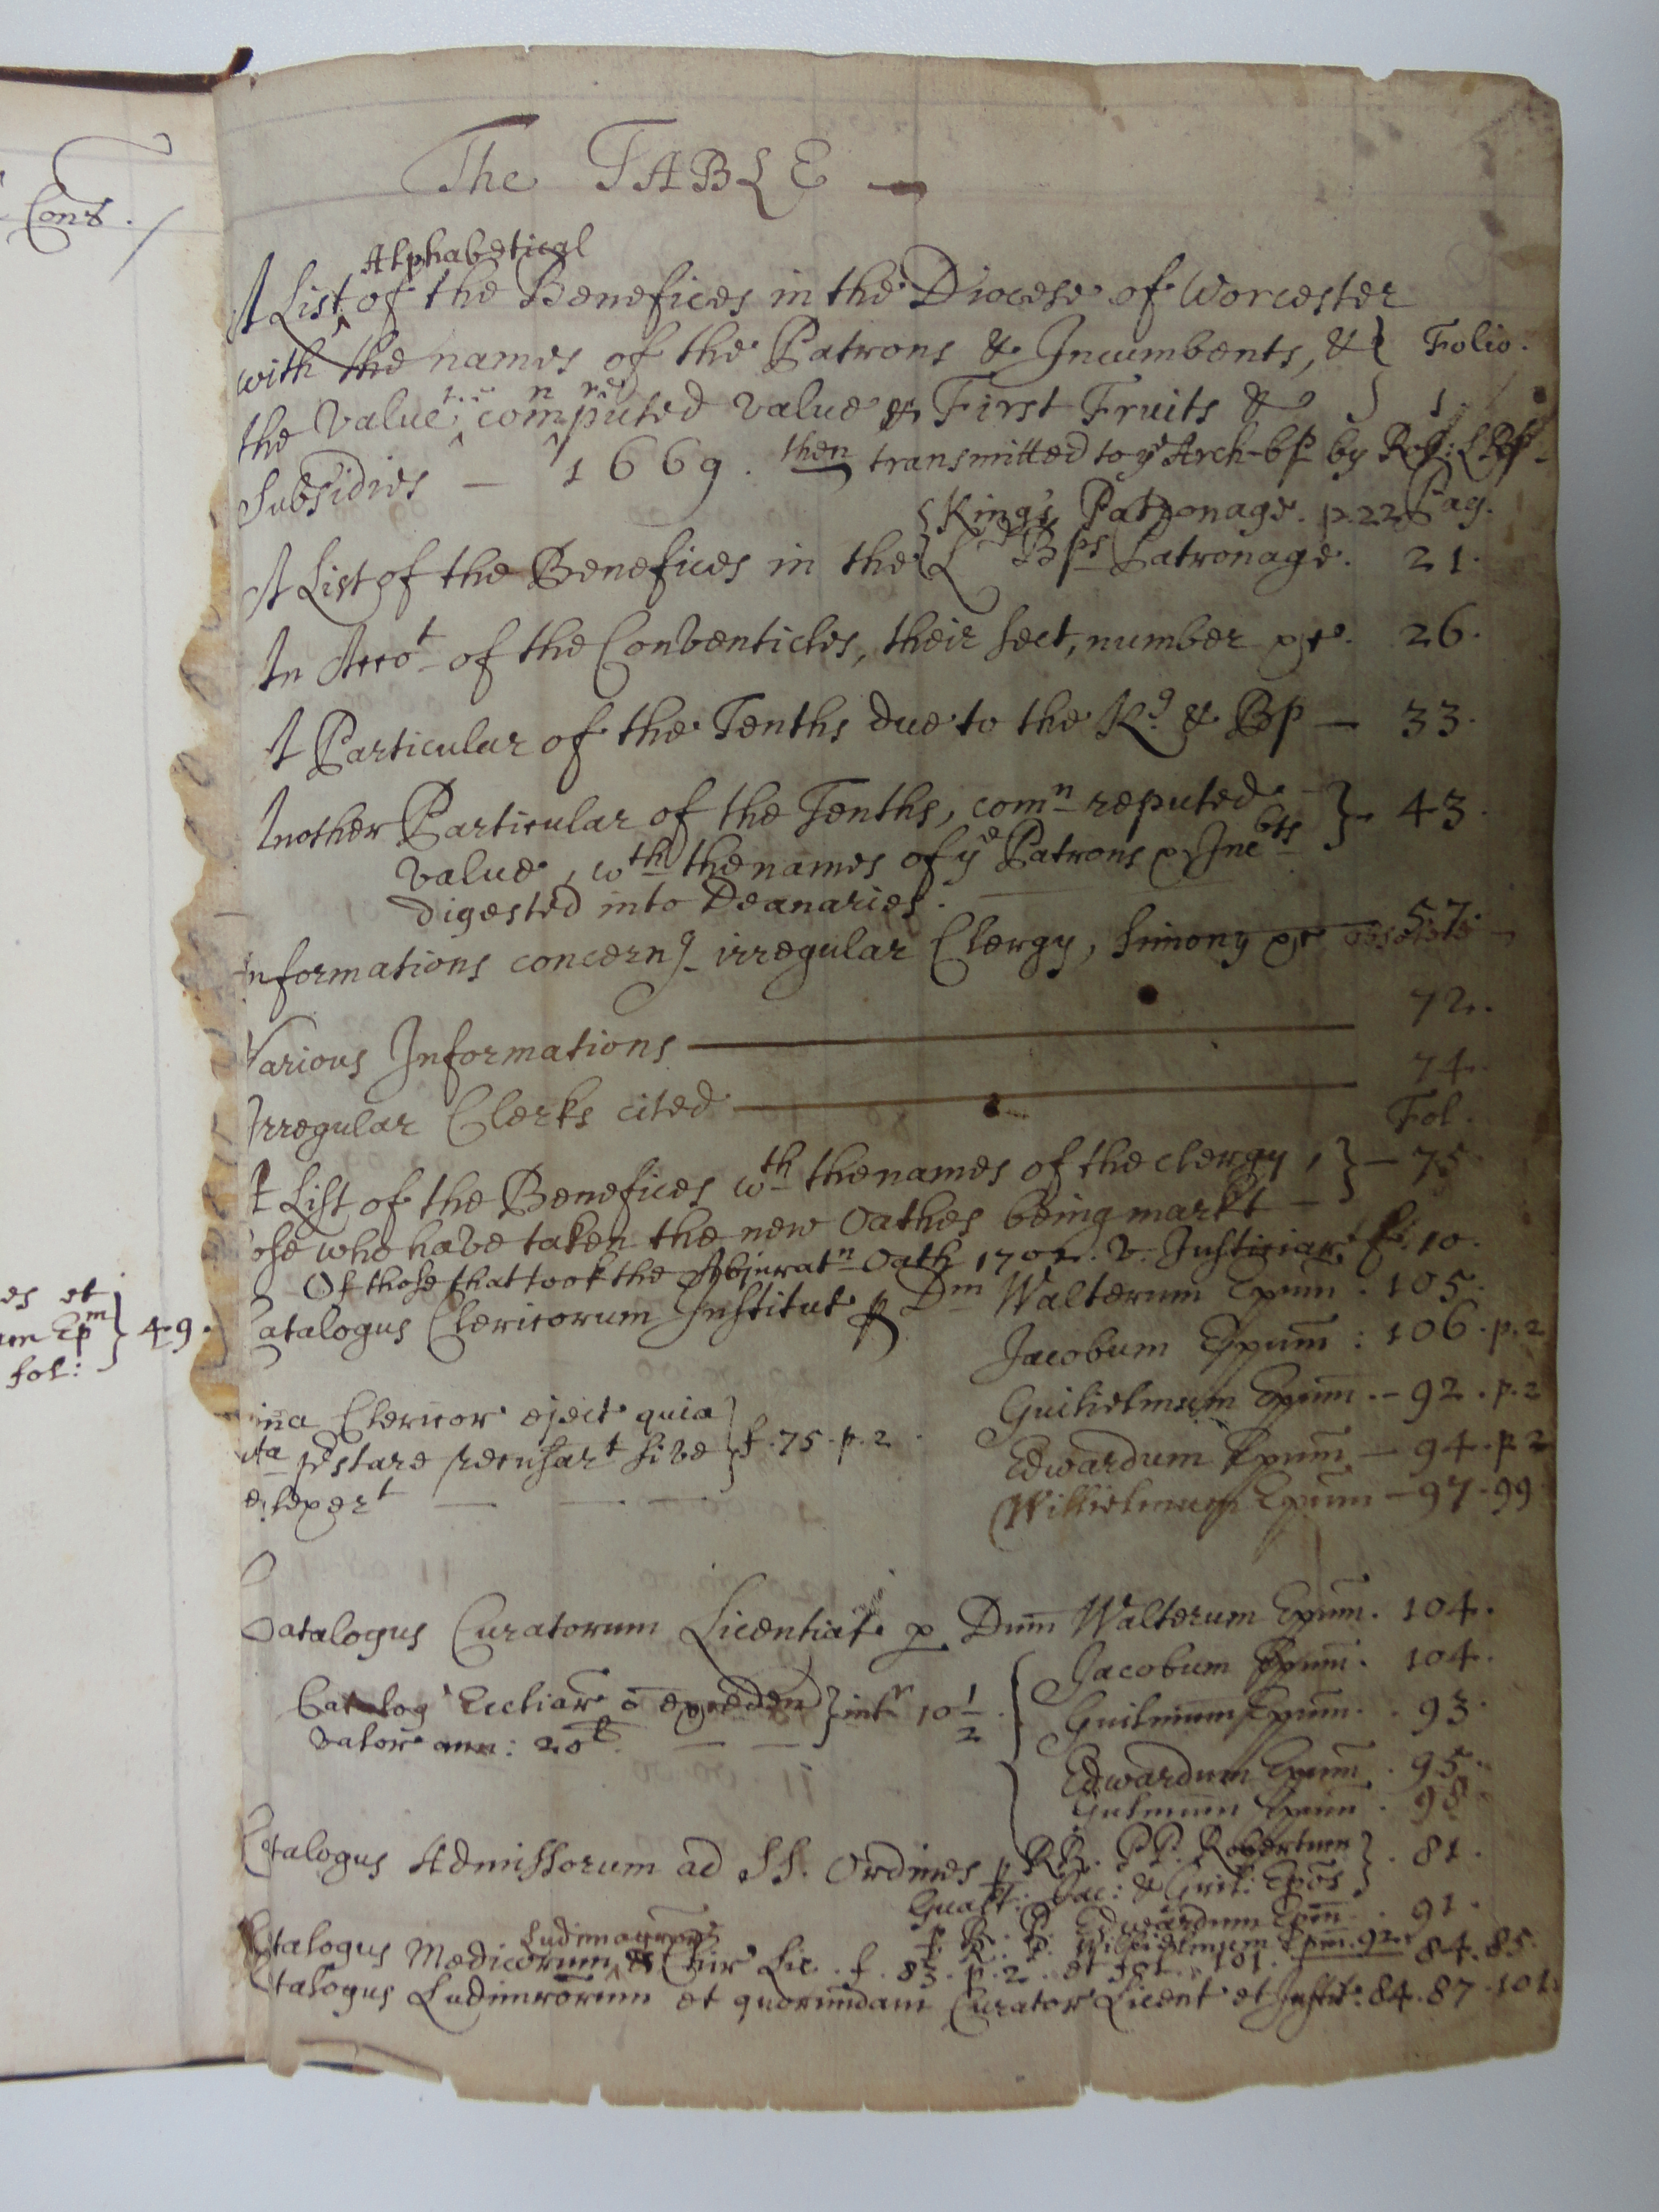 Cons.
The TABLE
Alphabetical
A List of the Benefices in the Diocese of Worcester
with the names of the Patrons & Incumbents, & } Folio.
the value computed value & First Fruits & 1
Subsidies — 1669. then transmitted to ye Arch-bp by
Kings Patronage. p.22 Pag.
A List of the Benefices in the Ld Bps Patronage. 21.
An Accot of the Conventicles, their sect, number &c. 26.
A Particular of the Tenths due to the Kg & Bp — 33.
Another Particular of the Tenths, comn reputed } 43.
value, wth the names of ye Patrons & Incbts
digested into Deanaries.
57.
Informations concerng irregular Clergy, Simony &c
72.
Various Informations
74.
Irregular Clerks cited
Fol.
A List of the Benefices wth the names of the clergy, } — 75
ose who have taken the new Oathes being markt —
Of those that took the Abjuratn Oath 1702. v. Justiciar. f. 10.
Catalogus Clericorum Institut p Dm Walterum Epum. 105.
es et
um Epm } 49.
fol:
Jacobum Epum: 106. p. 2
Guilielmum Epum. — 92. p. 2
ina Clericor eject quia
ta præstare recusart sive } f. 75. p. 2.
Edwardum Epum — 94. p. 2
Willielmum Epum — 97-99
Catalogus Curatorum Licentiat p Dum Walterum Epum. 104.
Jacobum Epum. 104.
Catalog Eccliar o exceden } intr 10 1/2
valor ann: 20l
Guilmum Epum. 93.
Edwardum Epum. 95.
Gulmum Epum. 98
Catalogus Admissorum ad SS. Ordines p RR. PP. Robertum } . 81.
Gualt: Jac: & Guil: Epos
p. R. P. Edwardum Epm. 91.
p. R. P. Willielmum Epm. 92.
Catalogus Medicorum & Chir Lic. f. 83. p. 2. et fol. 101. 84. 85.
Catalogus Ludimrorum et quorundam Curator Licent et Instit. 84. 87. 101.